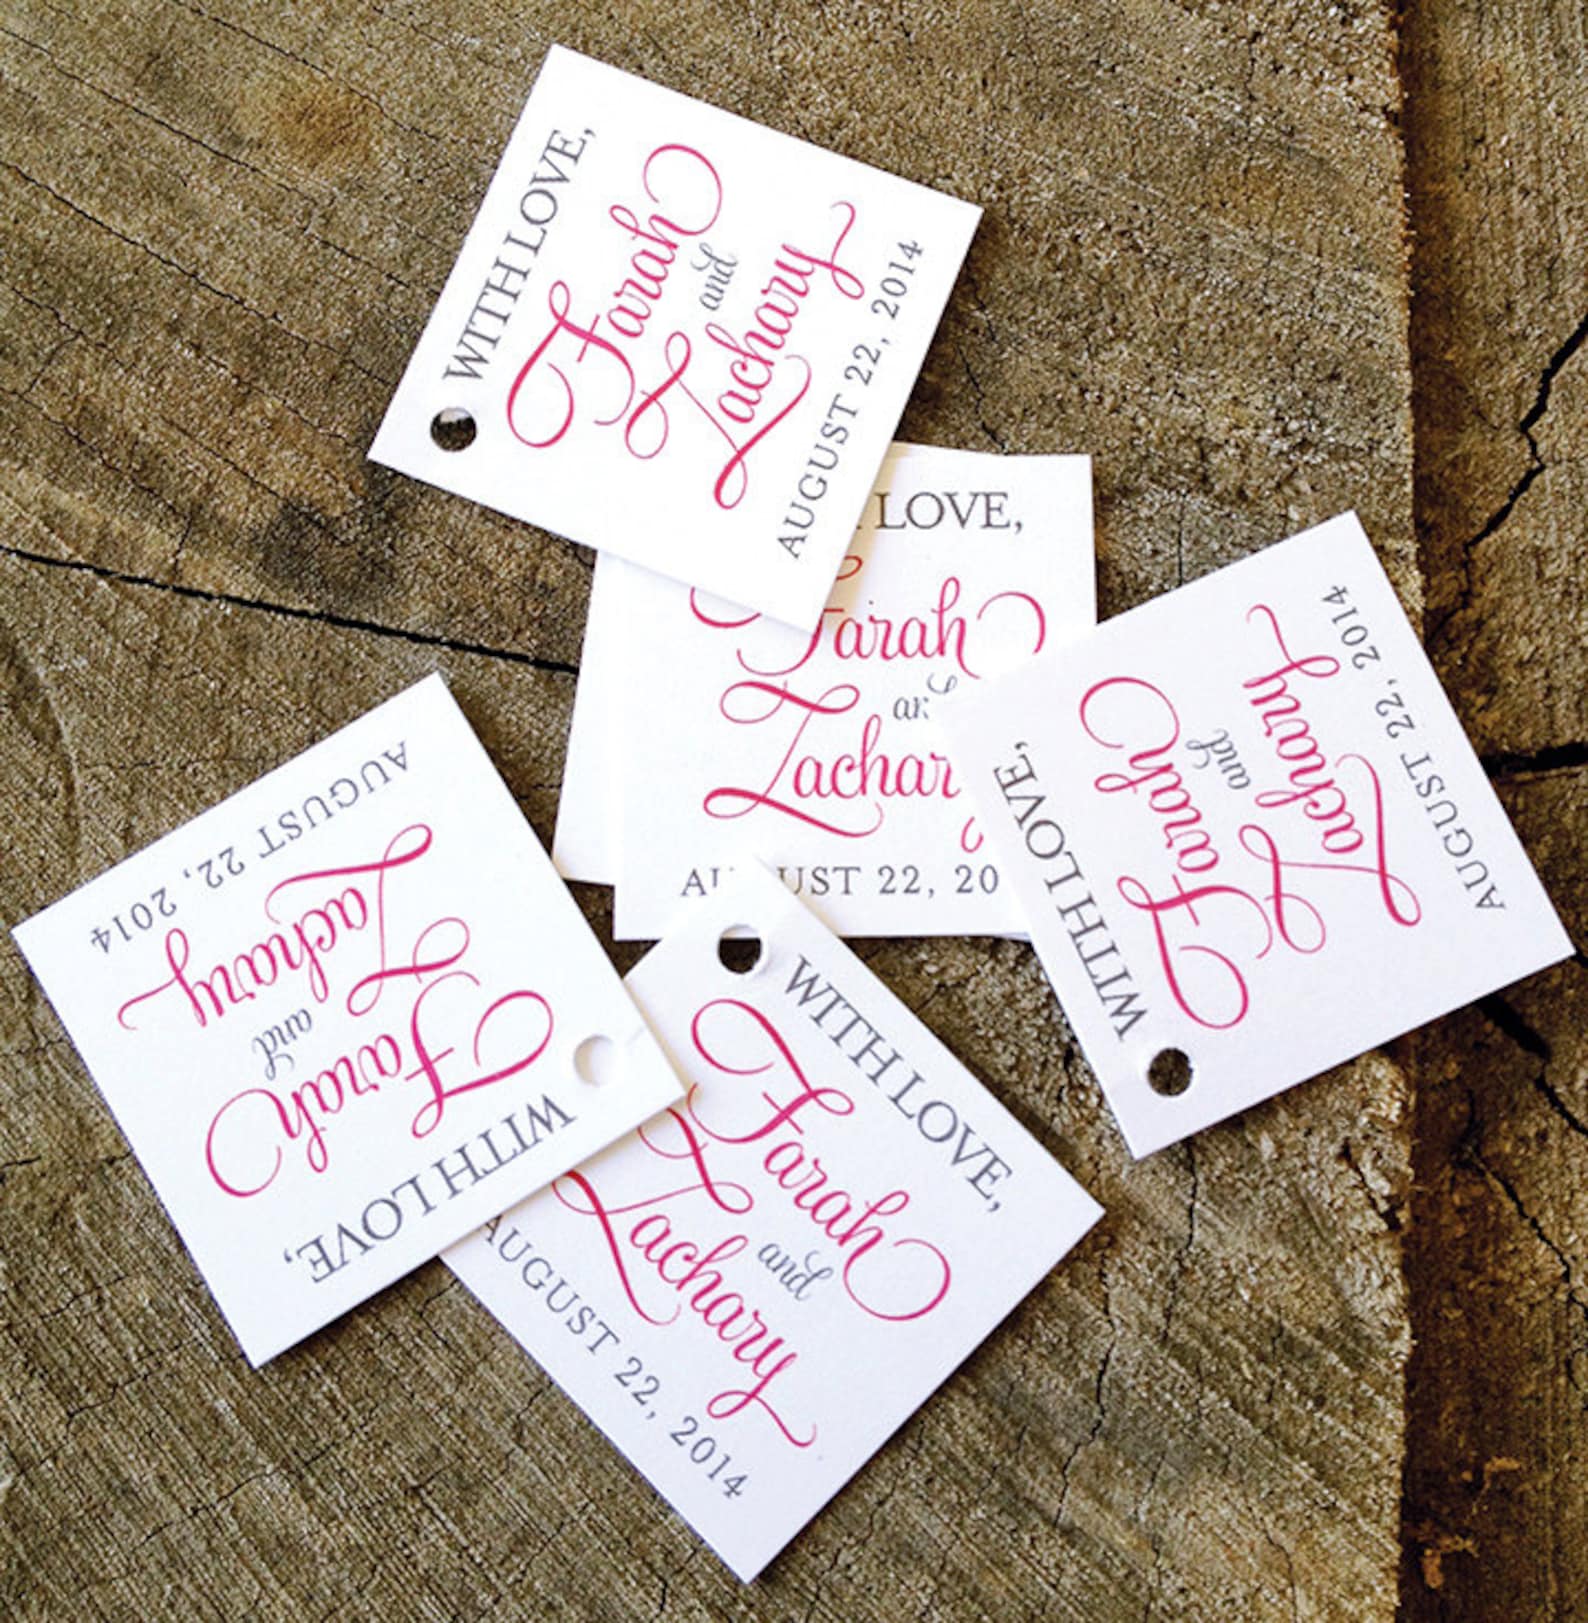 WITH LOVE,
Farah
and
Zachary
AUGUST 22, 2014
LOVE,
Farah
Zachar
UST 22, 20
WITH LOVE,
Farah
and
Zachary
AUGUST 22, 2014
WITH LOVE,
Farah
and
Zachary
AUGUST 22, 2014
WITH LOVE,
Farah
and
Zachary
AUGUST 22, 2014